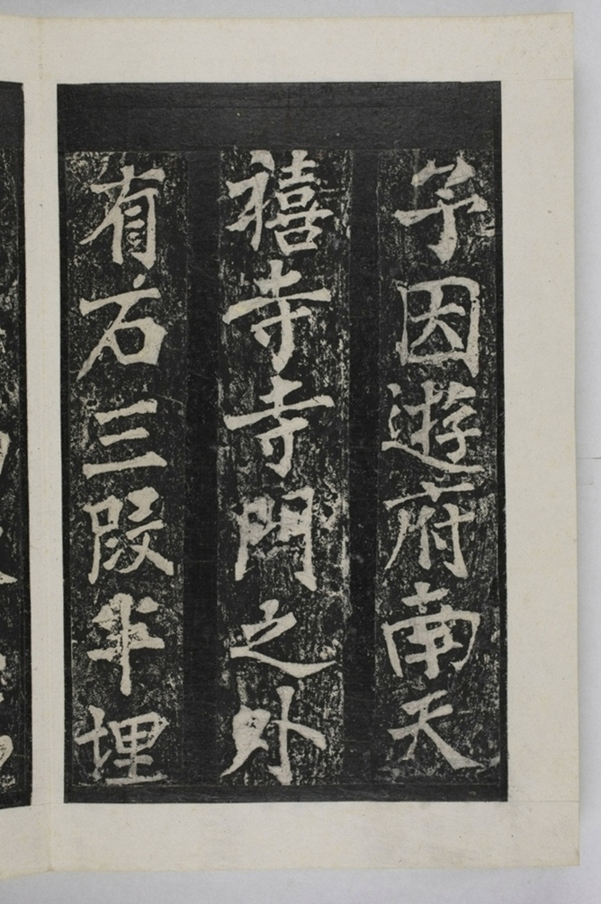 予因遊府南天
禧寺寺門之外
有石三段半埋